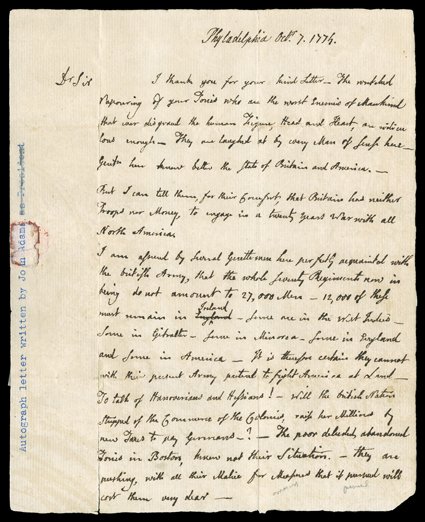 Phyladelphia Octr. 7. 1774.
Dr Sir
I thank you for your kind Letter — The wretched
Reasoning of your Tories who are the worst Enemies of Mankind
that ever disgraced the human Figure, Head and Heart, are
enough — They are laughed at by every Man of Sense here —
Gentn here know better the State of Britain and America. —
But I can tell them, for their Comfort, that Britain has neither
Troops nor Money, to engage in a twenty Years War with all
North America.
I am assured by several Gentlemen here perfectly acquainted with
the british Army, that the whole seventy Regiments now in
being do not amount to 27,000 Men — 12,000 of these
must remain in England Ireland — Some are in the West Indies —
Some in Gibraltr — Some in Minorca — Some in England
and Some in America — It is therefore certain they cannot
with their present Army pretend to fight America at Land —
To talk of Hanoverians and Hessians! — will the british Nation
Stripped of the Commerce of the Colonies, raise her Millions by
new Taxes to pay Germans —? — The poor deluded, abandoned
Tories in Boston, know not their Situation. — they are
pushing, with all their Malice for Measures that if pursued will
cost them very dear —
Autograph letter written by John Adams as President